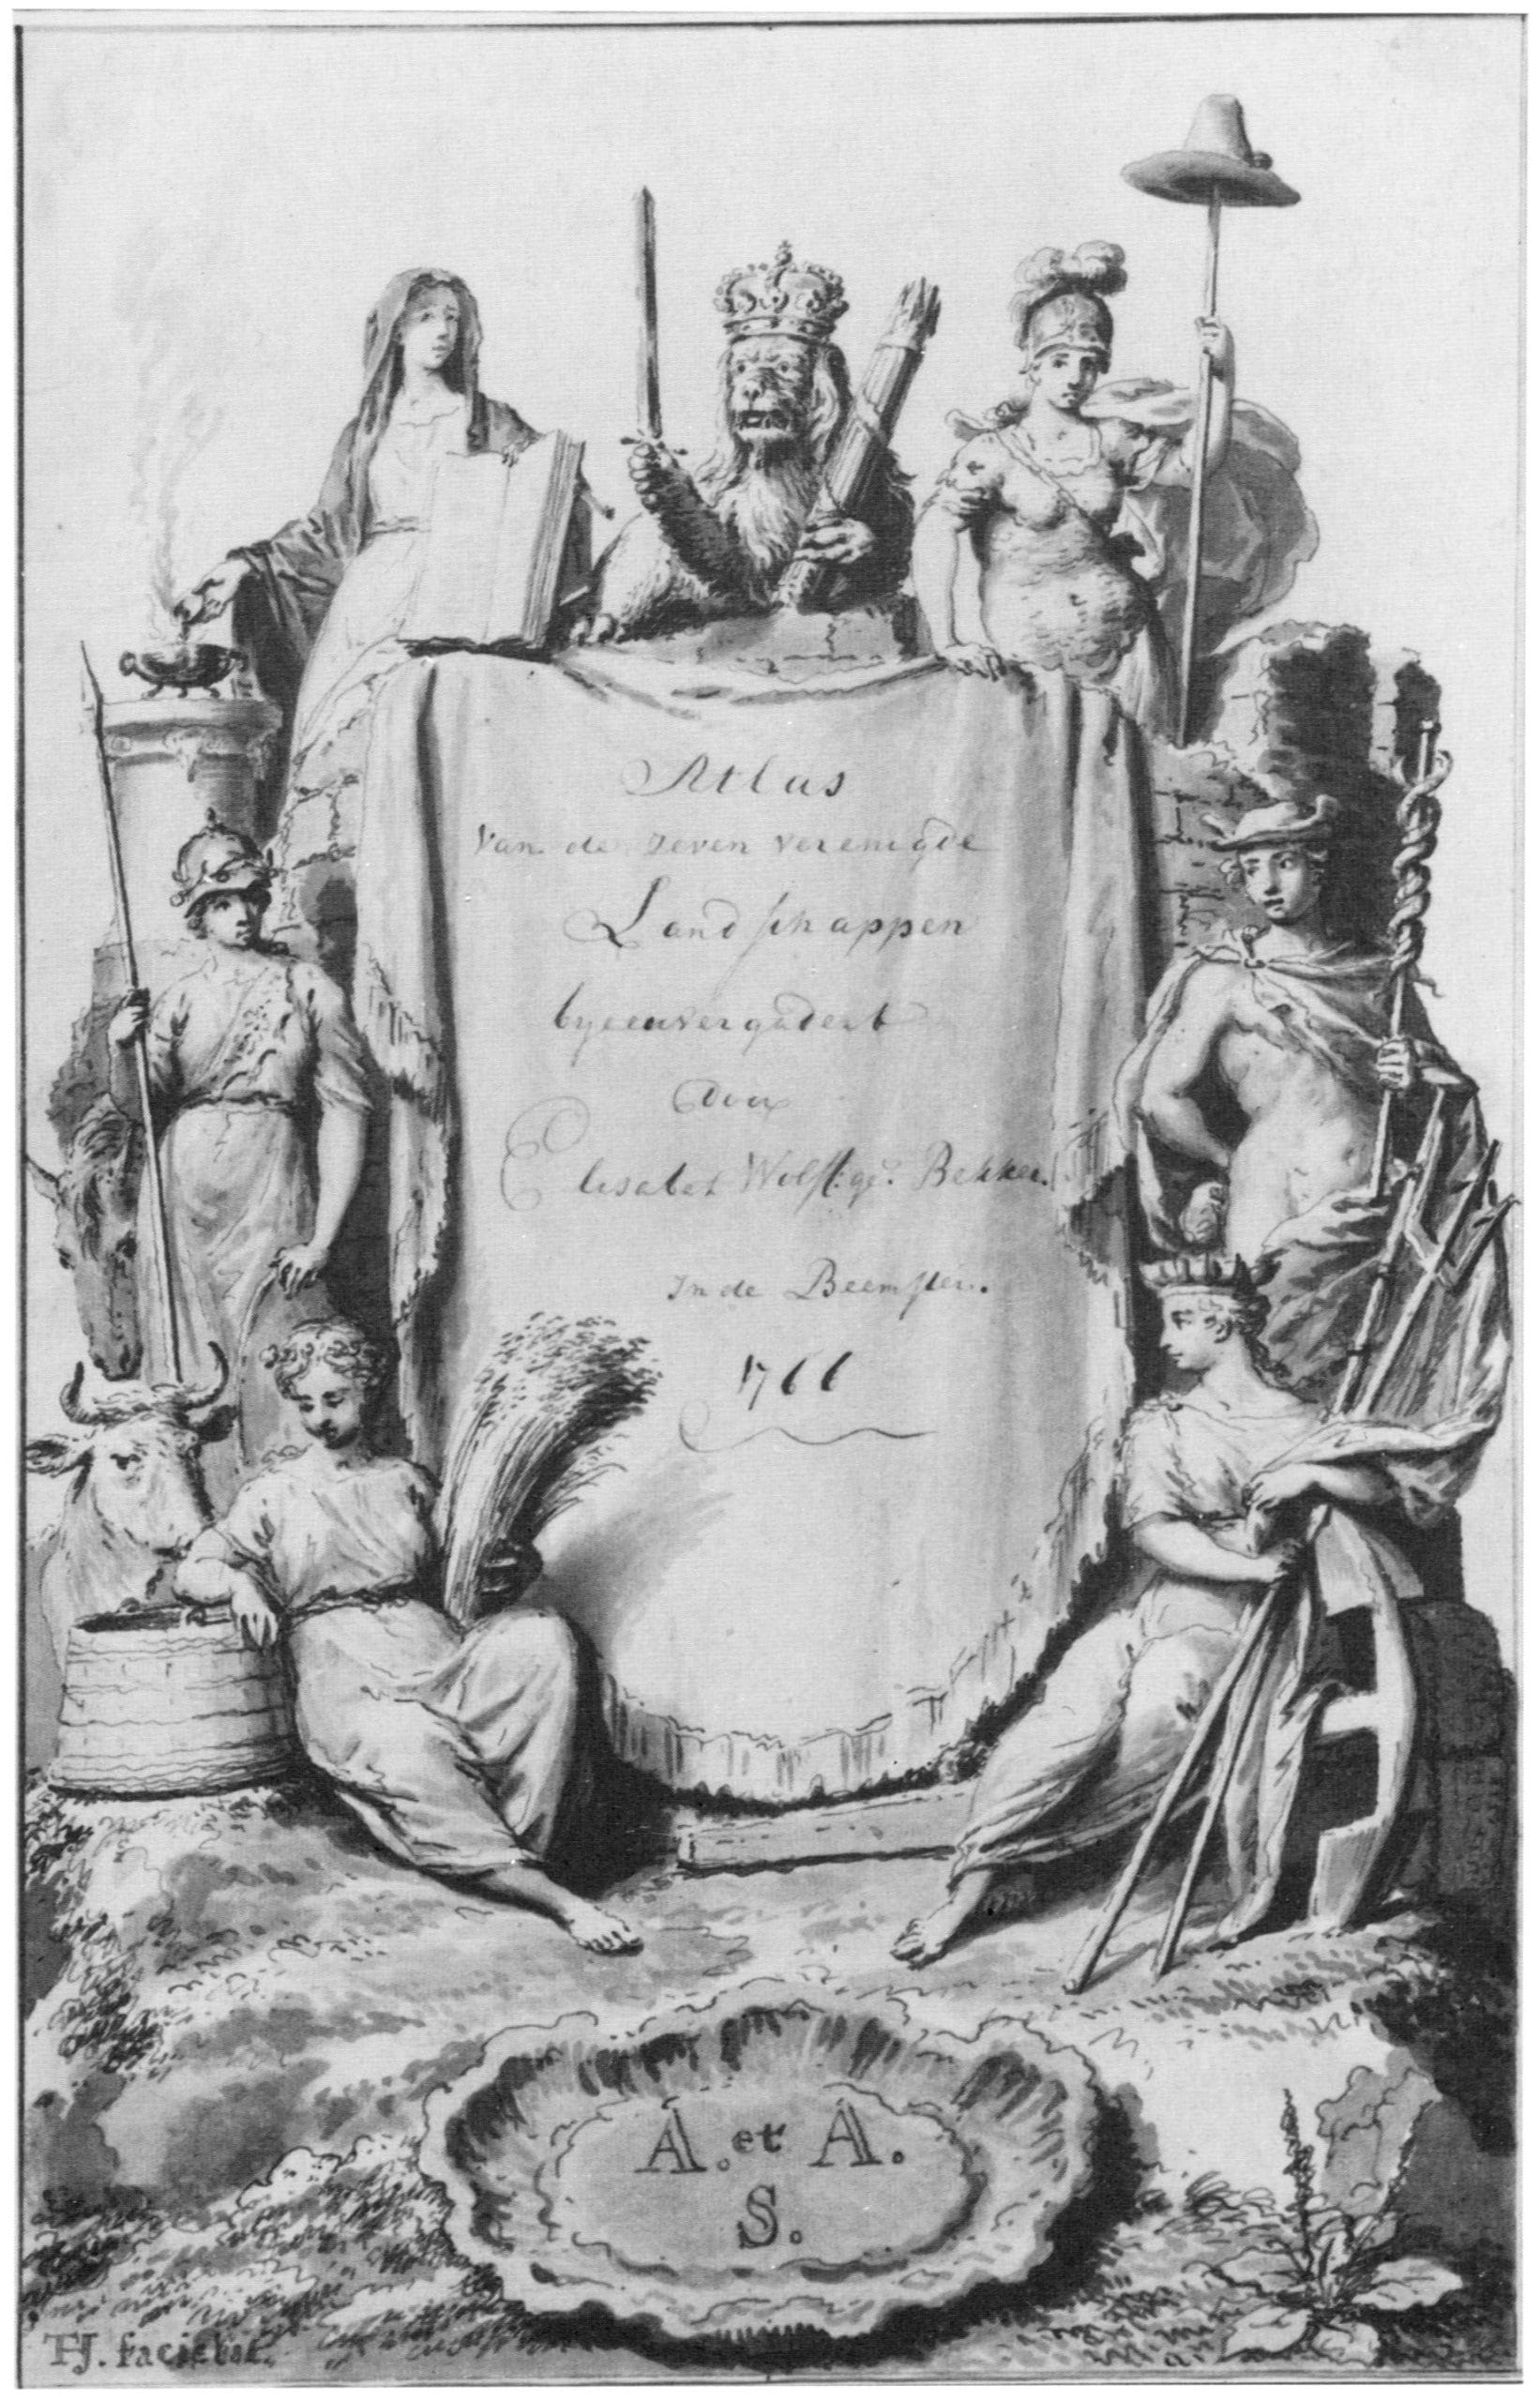 Atlas
van de zeven verenigde
Landschappen
byeenvergadert
door
Elisabet Wolff. ge: Bekker.
In de Beemster.
1766
A. et A.
S.
THJ. faciebat.